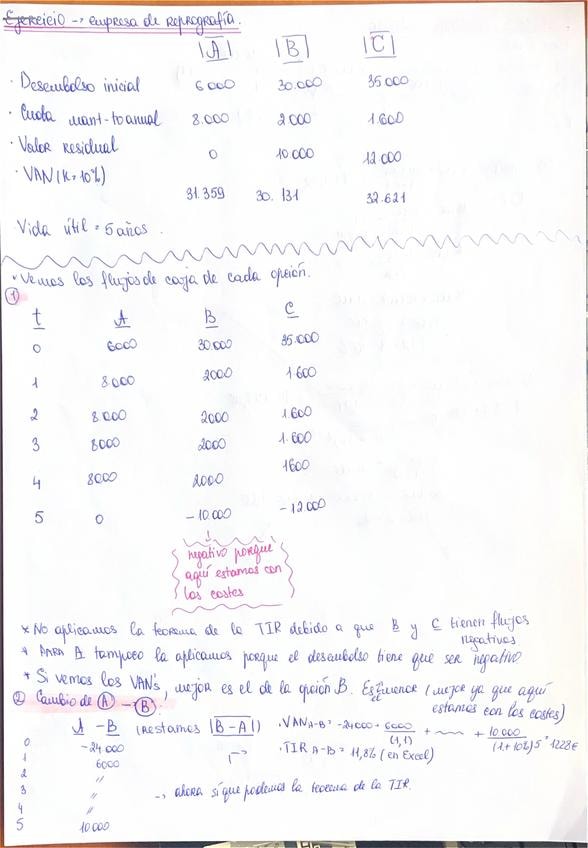 Ejercicio -> empresa de Reprografía.
|A| |B| |C|
· Desembolso inicial 6000 30.000 35.000
· Cuota mant-to anual 8.000 2000 1.600
· Valor residual 0 10.000 12.000
· VAN (K=10%)
31.359 30.131 32.621
Vida útil = 5 años.
* Vemos los flujos de caja de cada opción.
①
t A B C
0 6000 30.000 35.000
1 8.000 2000 1.600
2 8.000 2000 1.600
3 8000 2000 1.600
4 8000 2000 1600
5 0 -10.000 -12.000
↓
negativo porque
aquí estamos con
los costes
* No aplicamos la teorema de la TIR debido a que B y C tienen flujos
negativos
* PARA A tampoco la aplicamos porque el desembolso tiene que ser negativo
* Si vemos los VAN's, mejor es el de la opción B. Es el menor (mejor ya que aquí
estamos con los costes)
② Cambio de A -> B:
A - B (Restamos |B-A|) · VAN A-B = -24000 + 6000/(1,1) + ~~~ + 10.000/(1+10%)5 = 1228€
0 -24.000
1 6000 · TIR A-B = 11,8% (en Excel)
2 "
3 " -> ahora sí que podemos la teorema de la TIR.
4 "
5 10.000